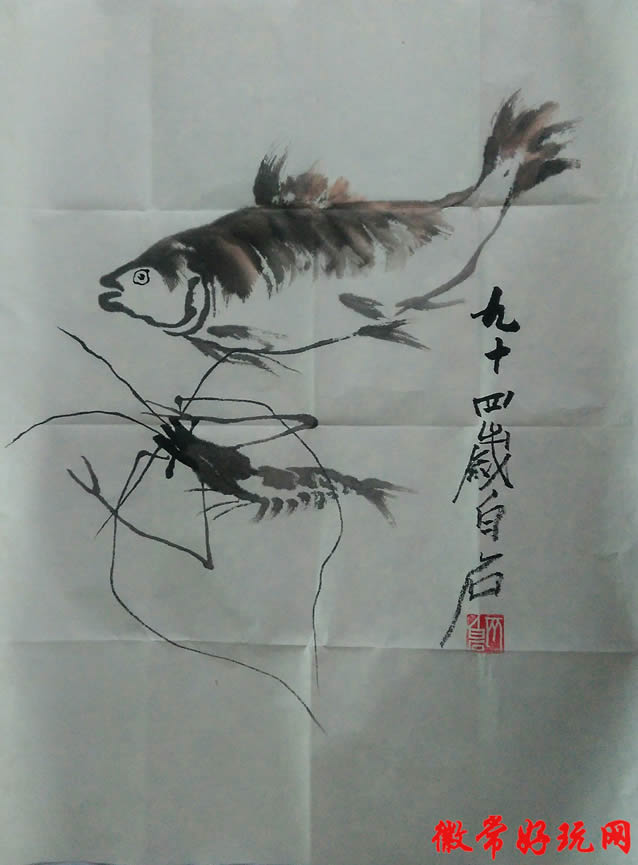 九十四歲白石
徽常好玩网